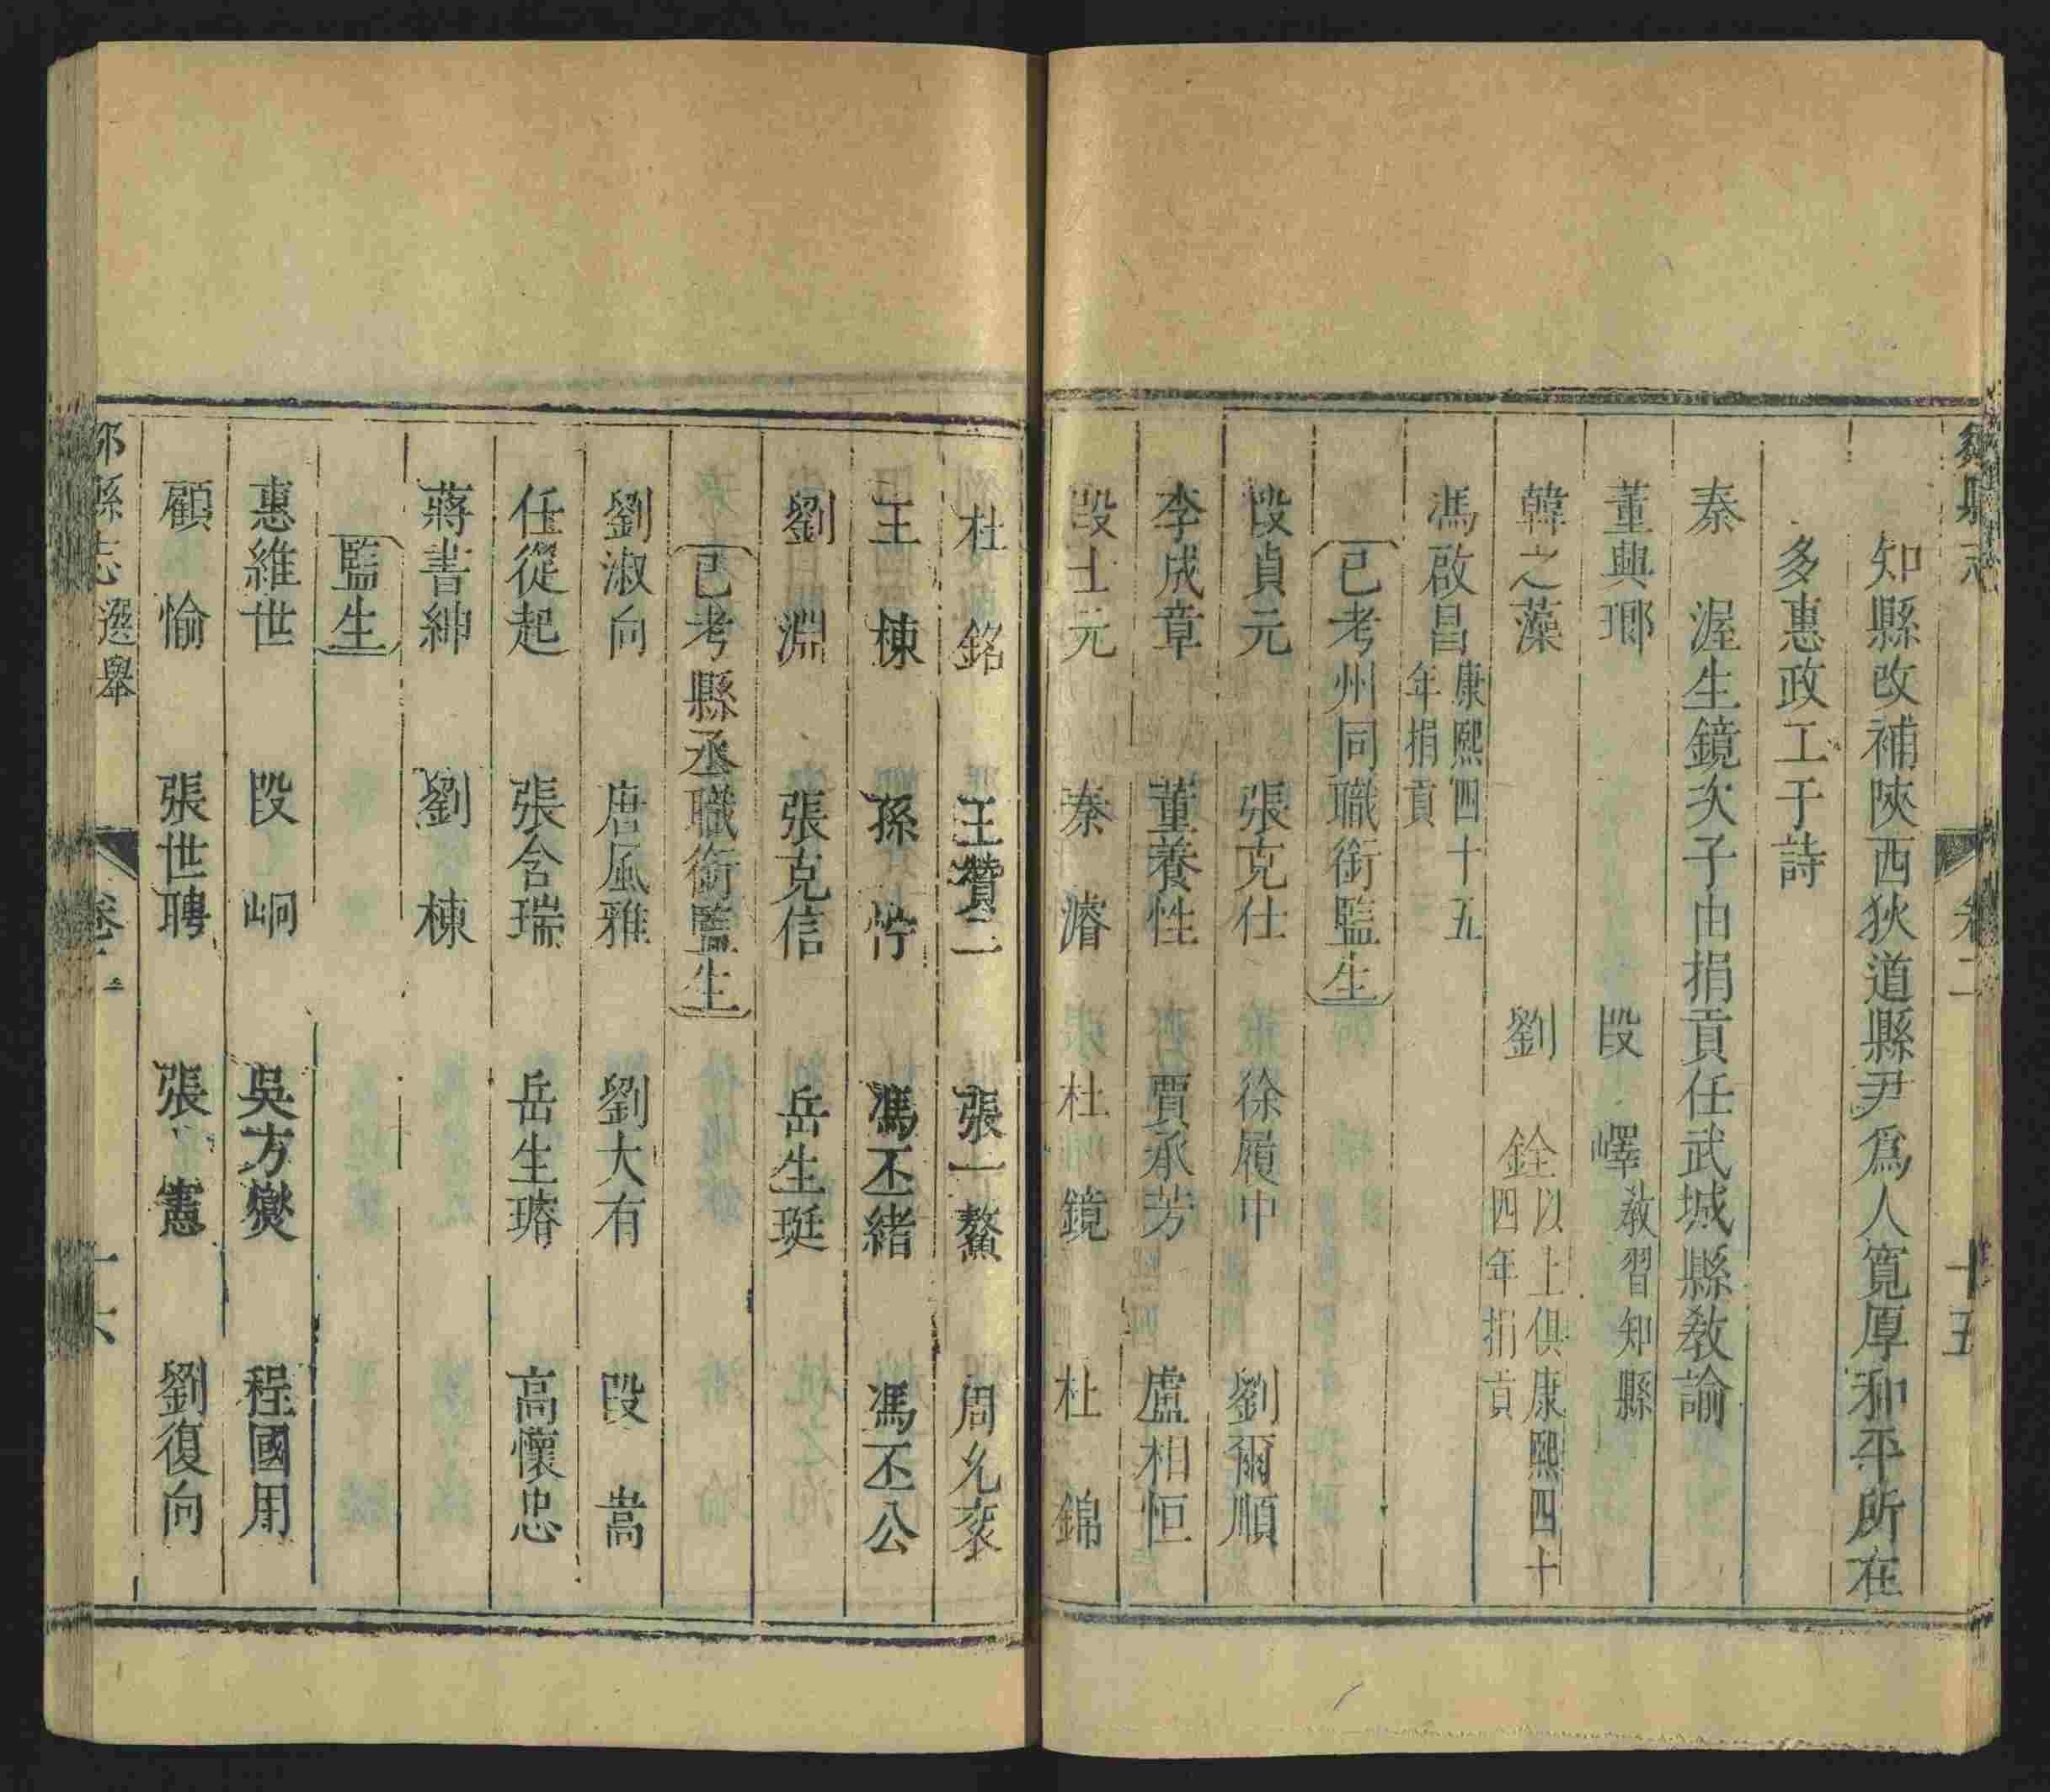 知縣改補陝西狄道縣尹爲人寬厚和平所在
多惠政工于詩
秦　渥生鏡次子由捐貢任武城縣教諭
董興瑯　段　嶧教習知縣
韓之藻　劉　銓以上俱康熙四十四年捐貢
馮啟昌康熙四十五年捐貢
已考州同職銜監生
段貞元　張克仕　徐履中　劉爾順
李成章　董養性　賈承芳　盧相恒
段士元　秦　濬　杜　鏡　杜　錦
杜　銘　王贊二　張一鰲　周允褎
王　棟　孫　㤖　馮丕緒　馮丕公
劉　淵　張克信　岳生珽
已考縣丞職銜監生
劉淑向　唐風雅　劉大有　段　嵩
任從起　張含瑞　岳生璿　高懷忠
蔣書紳　劉　棟
監生
惠維世　段　峒　吳方爕　程國用
顧　愉　張世聘　張　憲　劉復向
縣志　選舉　卷二　十六